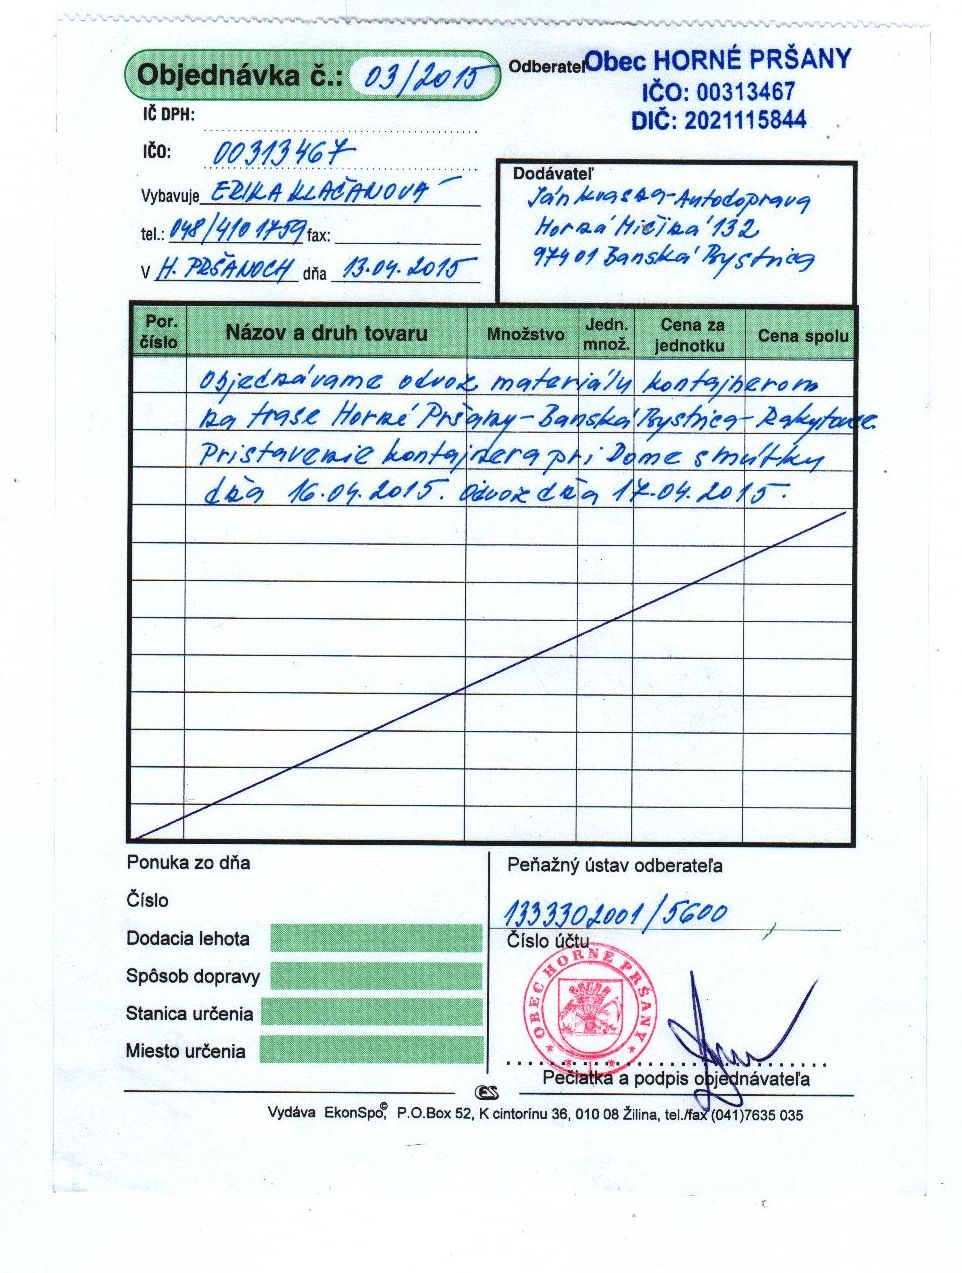 Objednávka č.: 03/2015
Odberateľ Obec HORNÉ PRŠANY
IČO: 00313467
DIČ: 2021115844
IČ DPH:
IČO: 00313467
Vybavuje ERIKA KLAČANOVÁ
tel.: 048/410 1759 fax:
V H. PRŠANOCH dňa 13.04.2015
Dodávateľ
Ján Autodoprava
Horná Mičiná 132
97401 Banská Bystrica
Por. číslo Názov a druh tovaru Množstvo Jedn. množ. Cena za jednotku Cena spolu
Objednávame odvoz materiálu kontajnerom
na trase Horné Pršany-Banská Bystrica-Rakytovce
Pristavenie kontajnera pri Dome smútku
dňa 16.04.2015. Odvoz dňa 17.04.2015.
Ponuka zo dňa
Číslo
Dodacia lehota
Spôsob dopravy
Stanica určenia
Miesto určenia
Peňažný ústav odberateľa
1333302001/5600
Číslo účtu
OBEC HORNÉ PRŠANY
Pečiatka a podpis objednávateľa
ES
Vydáva EkonSpo©, P.O.Box 52, K cintorínu 36, 010 08 Žilina, tel./fax (041)7635 035